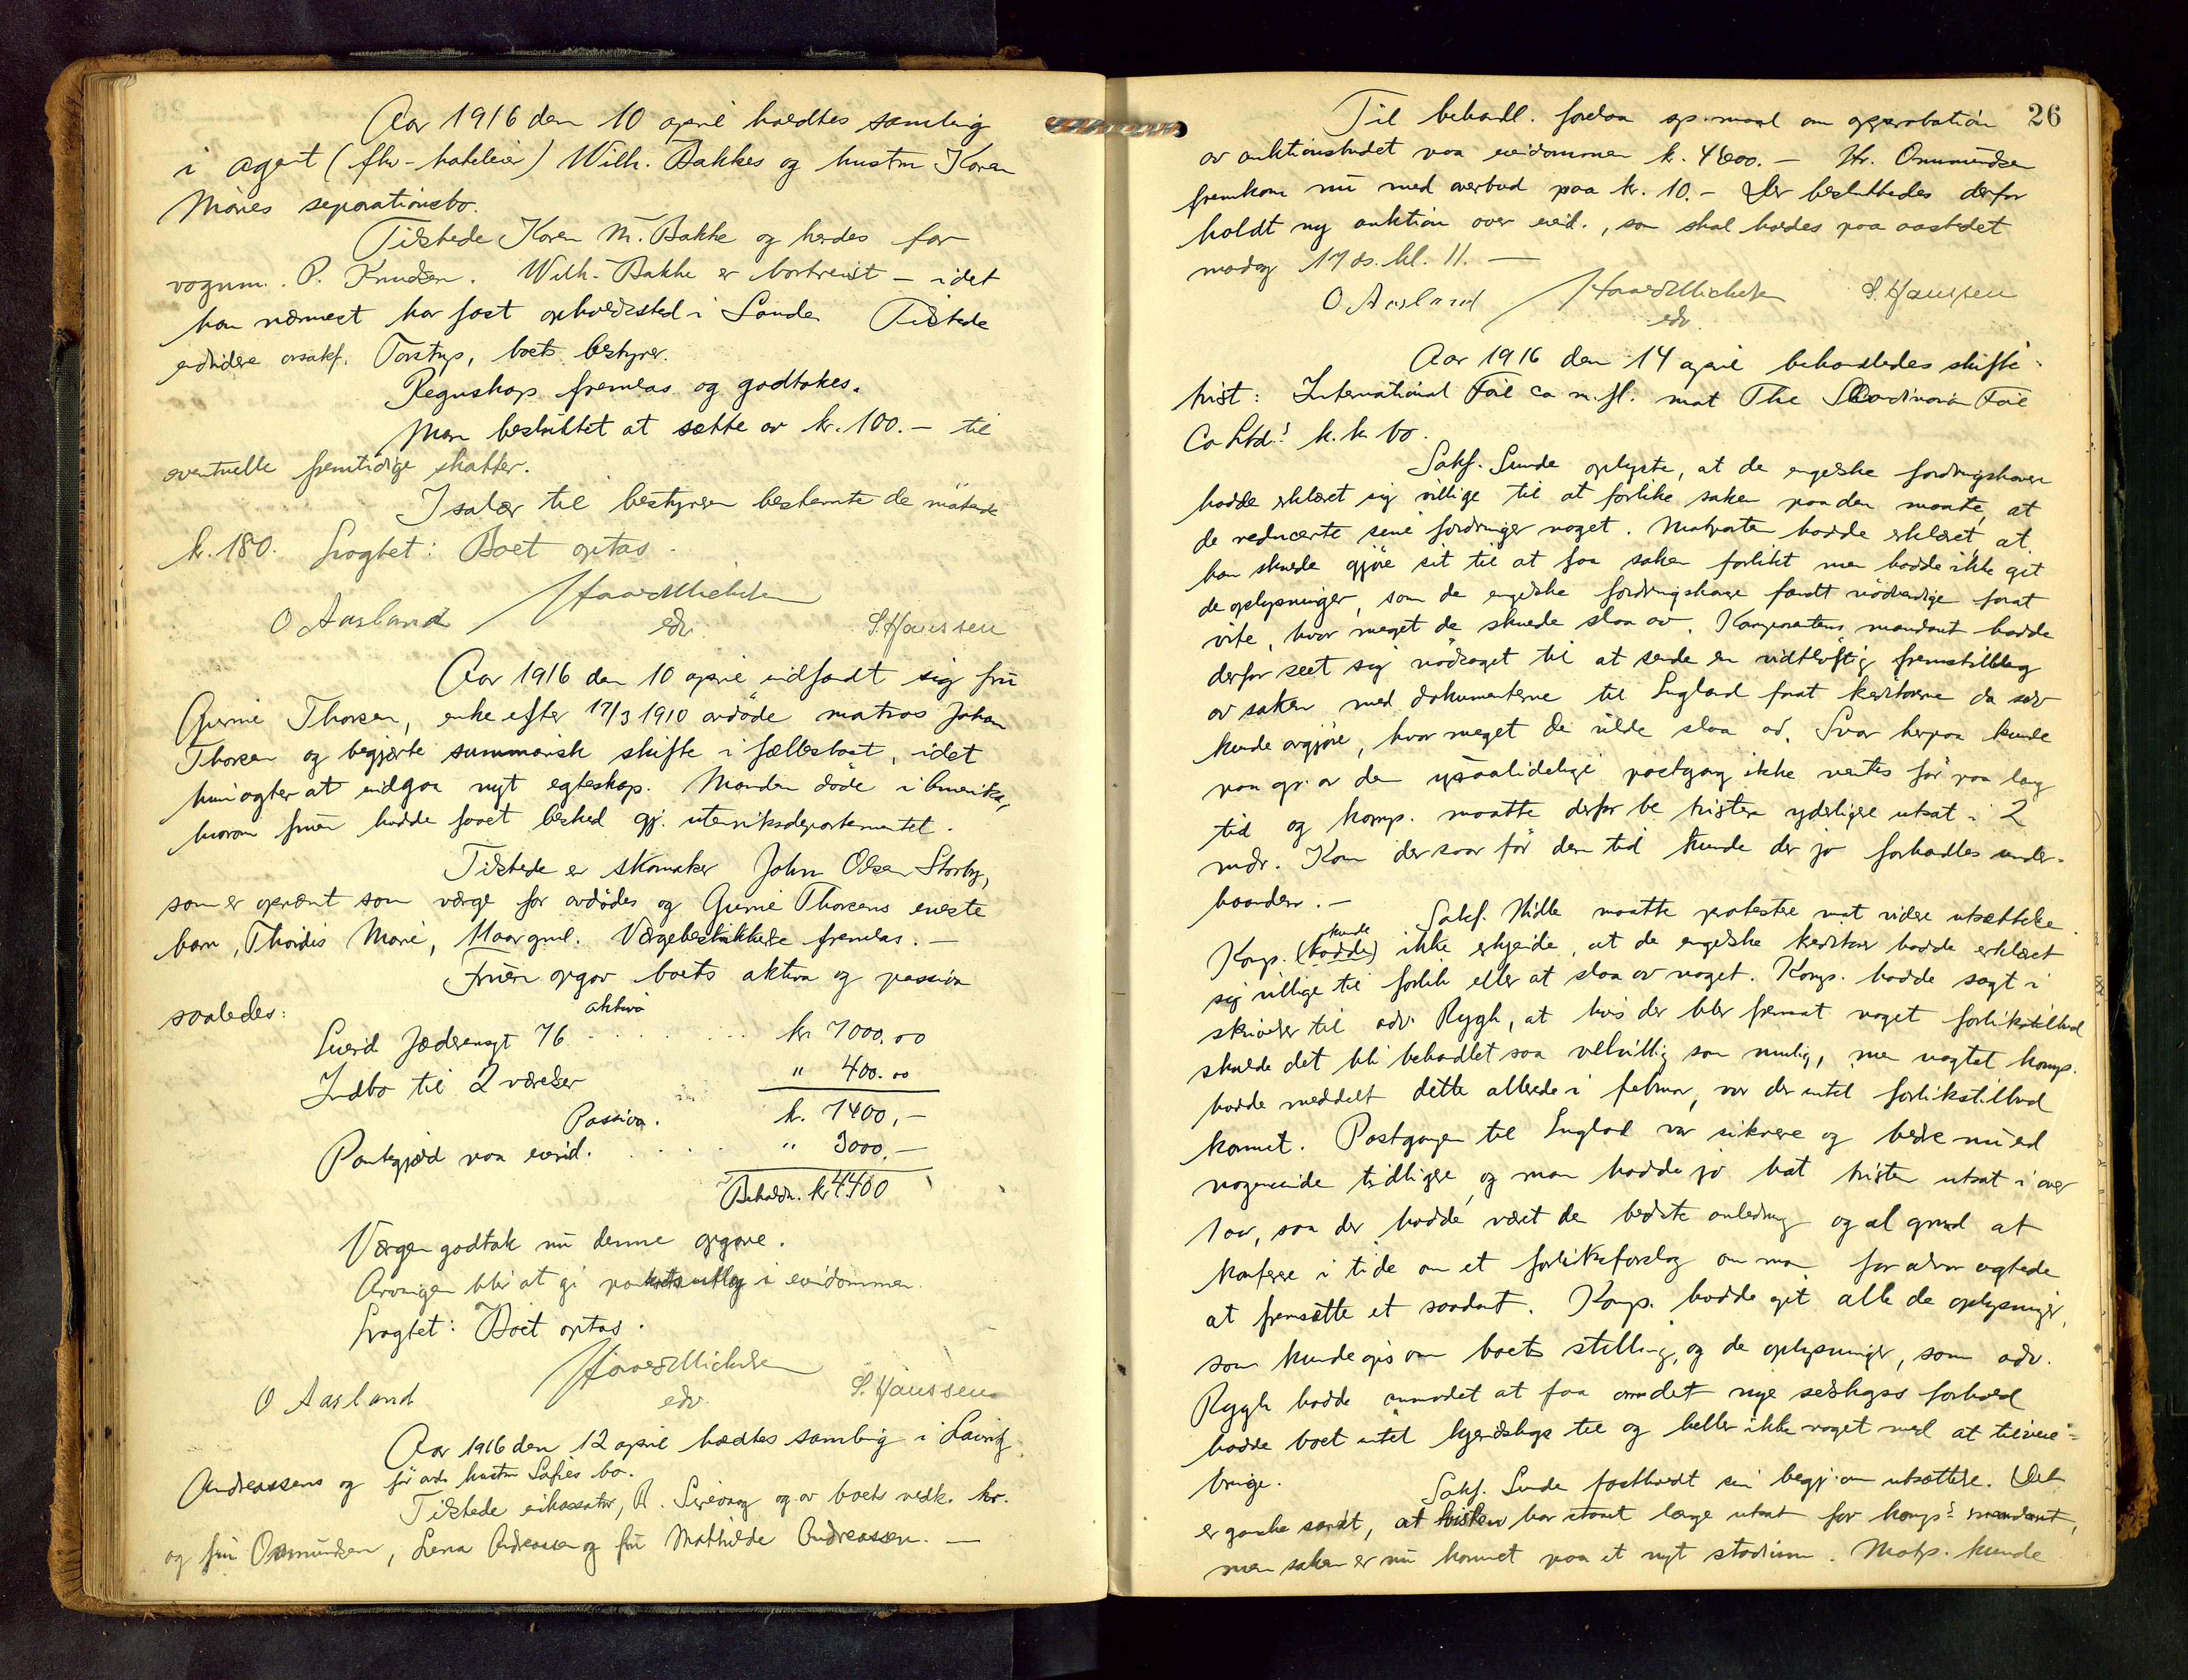 Aar 1916 den 10 april holdtes samling
i agent (fhv. hoteleier) Wilh. Bakkes og hustru Karen
Maries separationsbo.
Tilstede Karen M. Bakke og hendes for
vognm. P. Knudsen. Wilh. Bakke er bortreist - idet
han nærmest har fast opholdssted i Sande. Tilstede
endvidere orsakf. Torstrup, boets bestyrer.
Regnskap fremlas og godtokes.
Man besluttet at sætte av kr. 100.- til
eventuelle fremtidige skatter.
I salær til bestyreren bestemte de mötende
kr. 180. Sragtet: Boet optas.
O Aasland Haard Michelsen S. Hanssen
edv.
Aar 1916 den 10 april indfandt sig fru
Gurine Thorsen, enke efter 17/3 1910 avdöde matros Johan
Thorsen og begjærte summarisk skifte i fællesboet, idet
hun agter at indgaa nyt egteskap. Manden döde i Amerika,
hvorom fruen hadde faaet besked gj. utenriksdepartementet.
Tilstede er skomaker John Olsen Storby,
som er opnævnt som værge for avdödes og Gurine Thorsens eneste
barn, Thordis Marie, 11 aar gml. Værgebeskikkelse fremlas. -
Fruen opgav boets aktiva og passiva
saaledes:
aktiva
Eiend. Jæderengt 76 . . . . . . kr. 7000.00
Indbo til 2 værelser " 400.00
Passiva. kr. 7400,-
Pantegjæld paa eiend. . . . . . " 3000.-
Beholdn. kr 4400
Værgen godtok nu denne opgave.
Arvingen blir at gi i eiendommen
Sragtet: Boet optas.
O Aasland Haard Michelsen S. Hanssen
edv.
Aar 1916 den 12 april holdtes samling i Lauritz
Andreassens og för avd. hustru Sofies bo.
Tilstede eikassator, B. Sirevaag og av boets vedk. hr.
og fru Ommundsen, Lena Andreassen og fru Mathilde Andreassen. -
26
Til behandl. forelaa sp.maal om approbation
av auktionsbudet paa eiendommen k. 4600.- Hr. Ommundsen
fremkom nu med overbud paa kr. 10.- Der besluttedes derfor
holdt ny auktion over eiend., som skal holdes paa aastedet
mandag 17 ds. kl. 11. -
O Aasland Haard Michelsen S. Hanssen
edv.
Aar 1916 den 14 april behandledes skifte-
tvist: International Foil Co m. fl. mot The Scandinavian Foil
Co Ltd.s k.k. bo.
Sakf. Sunde oplyste, at de engelske fordringshavere
hadde erklæret sig villige til at forlike saken paa den maate, at
de reducerte sine fordringer noget. Motparten hadde erklæret, at
han skulde gjöre sit til at faa saken forlikt men hadde ikke git
de oplysninger, som de engelske fordringshavere fandt nödvendige forat
vite, hvor meget de skulde slaa av. Komparentens mandant hadde
derfor seet sig nödsaget til at sende en vidtlöftig fremstilling
av saken med dokumenterne til England forat kreditorerne da selv
kunde avgjöre, hvor meget de vilde slaa av. Svar herpaa kunde
paa gr. av den upaalidelige postgang ikke ventes för paa lang
tid og komp. maatte derfor be tvisten yderligere utsat i 2
mdr. Kom der svar för den tid kunde der jo forhandles under-
haanden. -
Sakf. Hidle maatte protestere mot videre utsættelse.
Komp. (hadde) kunde ikke erkjende, at de engelske kreditorer hadde erklæret
sig villige til forlik eller at slaa av noget. Komp. hadde sagt i
skrivelser til adv. Rygh, at hvis der blev fremsat noget forlikstilbud
skulde det bli behandlet saa velvillig som mulig, men uagtet komp.
hadde meddelt dette allerede i februar, var der intet forlikstilbud
kommet. Postgangen til England var sikrere og bedre nu end
nogensinde tidligere, og man hadde jo hat tvisten utsat i over
1 aar, saa der hadde været den bedste anledning og al grund at
konferere i tide om et forliksforslag om man for alvor agtede
at fremsætte et saadant. Komp. hadde git alle de oplysninger,
som kunde gis om boets stilling, og de oplysninger, som adv.
Rygh hadde anmodet at faa om det nye selskaps forhold
hadde boet intet kjendskap til og heller ikke noget med at tilveie-
bringe.
Sakf. Sunde fastholdt sin begj. om utsættelse. Det
er ganske sandt, at tvisten har staaet længe utsat for komp.s mandant,
men saken er nu kommet paa et nyt stadium. Motp. kunde